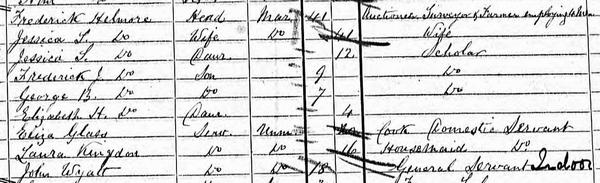 Frederick Helmore Head Mar. 41 Auctioneer Surveyor & Farmer employing 10 Men
Jessica S. Do Wife Do 41 Wife
Jessica S. Do Daur. 12 Scholar
Frederick J. Do Son 9 Do
George B. Do Do 7 Do
Elizabeth H. Do Daur. 4
Eliza Glass Serv. Unmar Cook Domestic Servant
Laura Kingdon Do Do 16 Housemaid Do
John Wyatt Do Do 18 General Servant Indoor